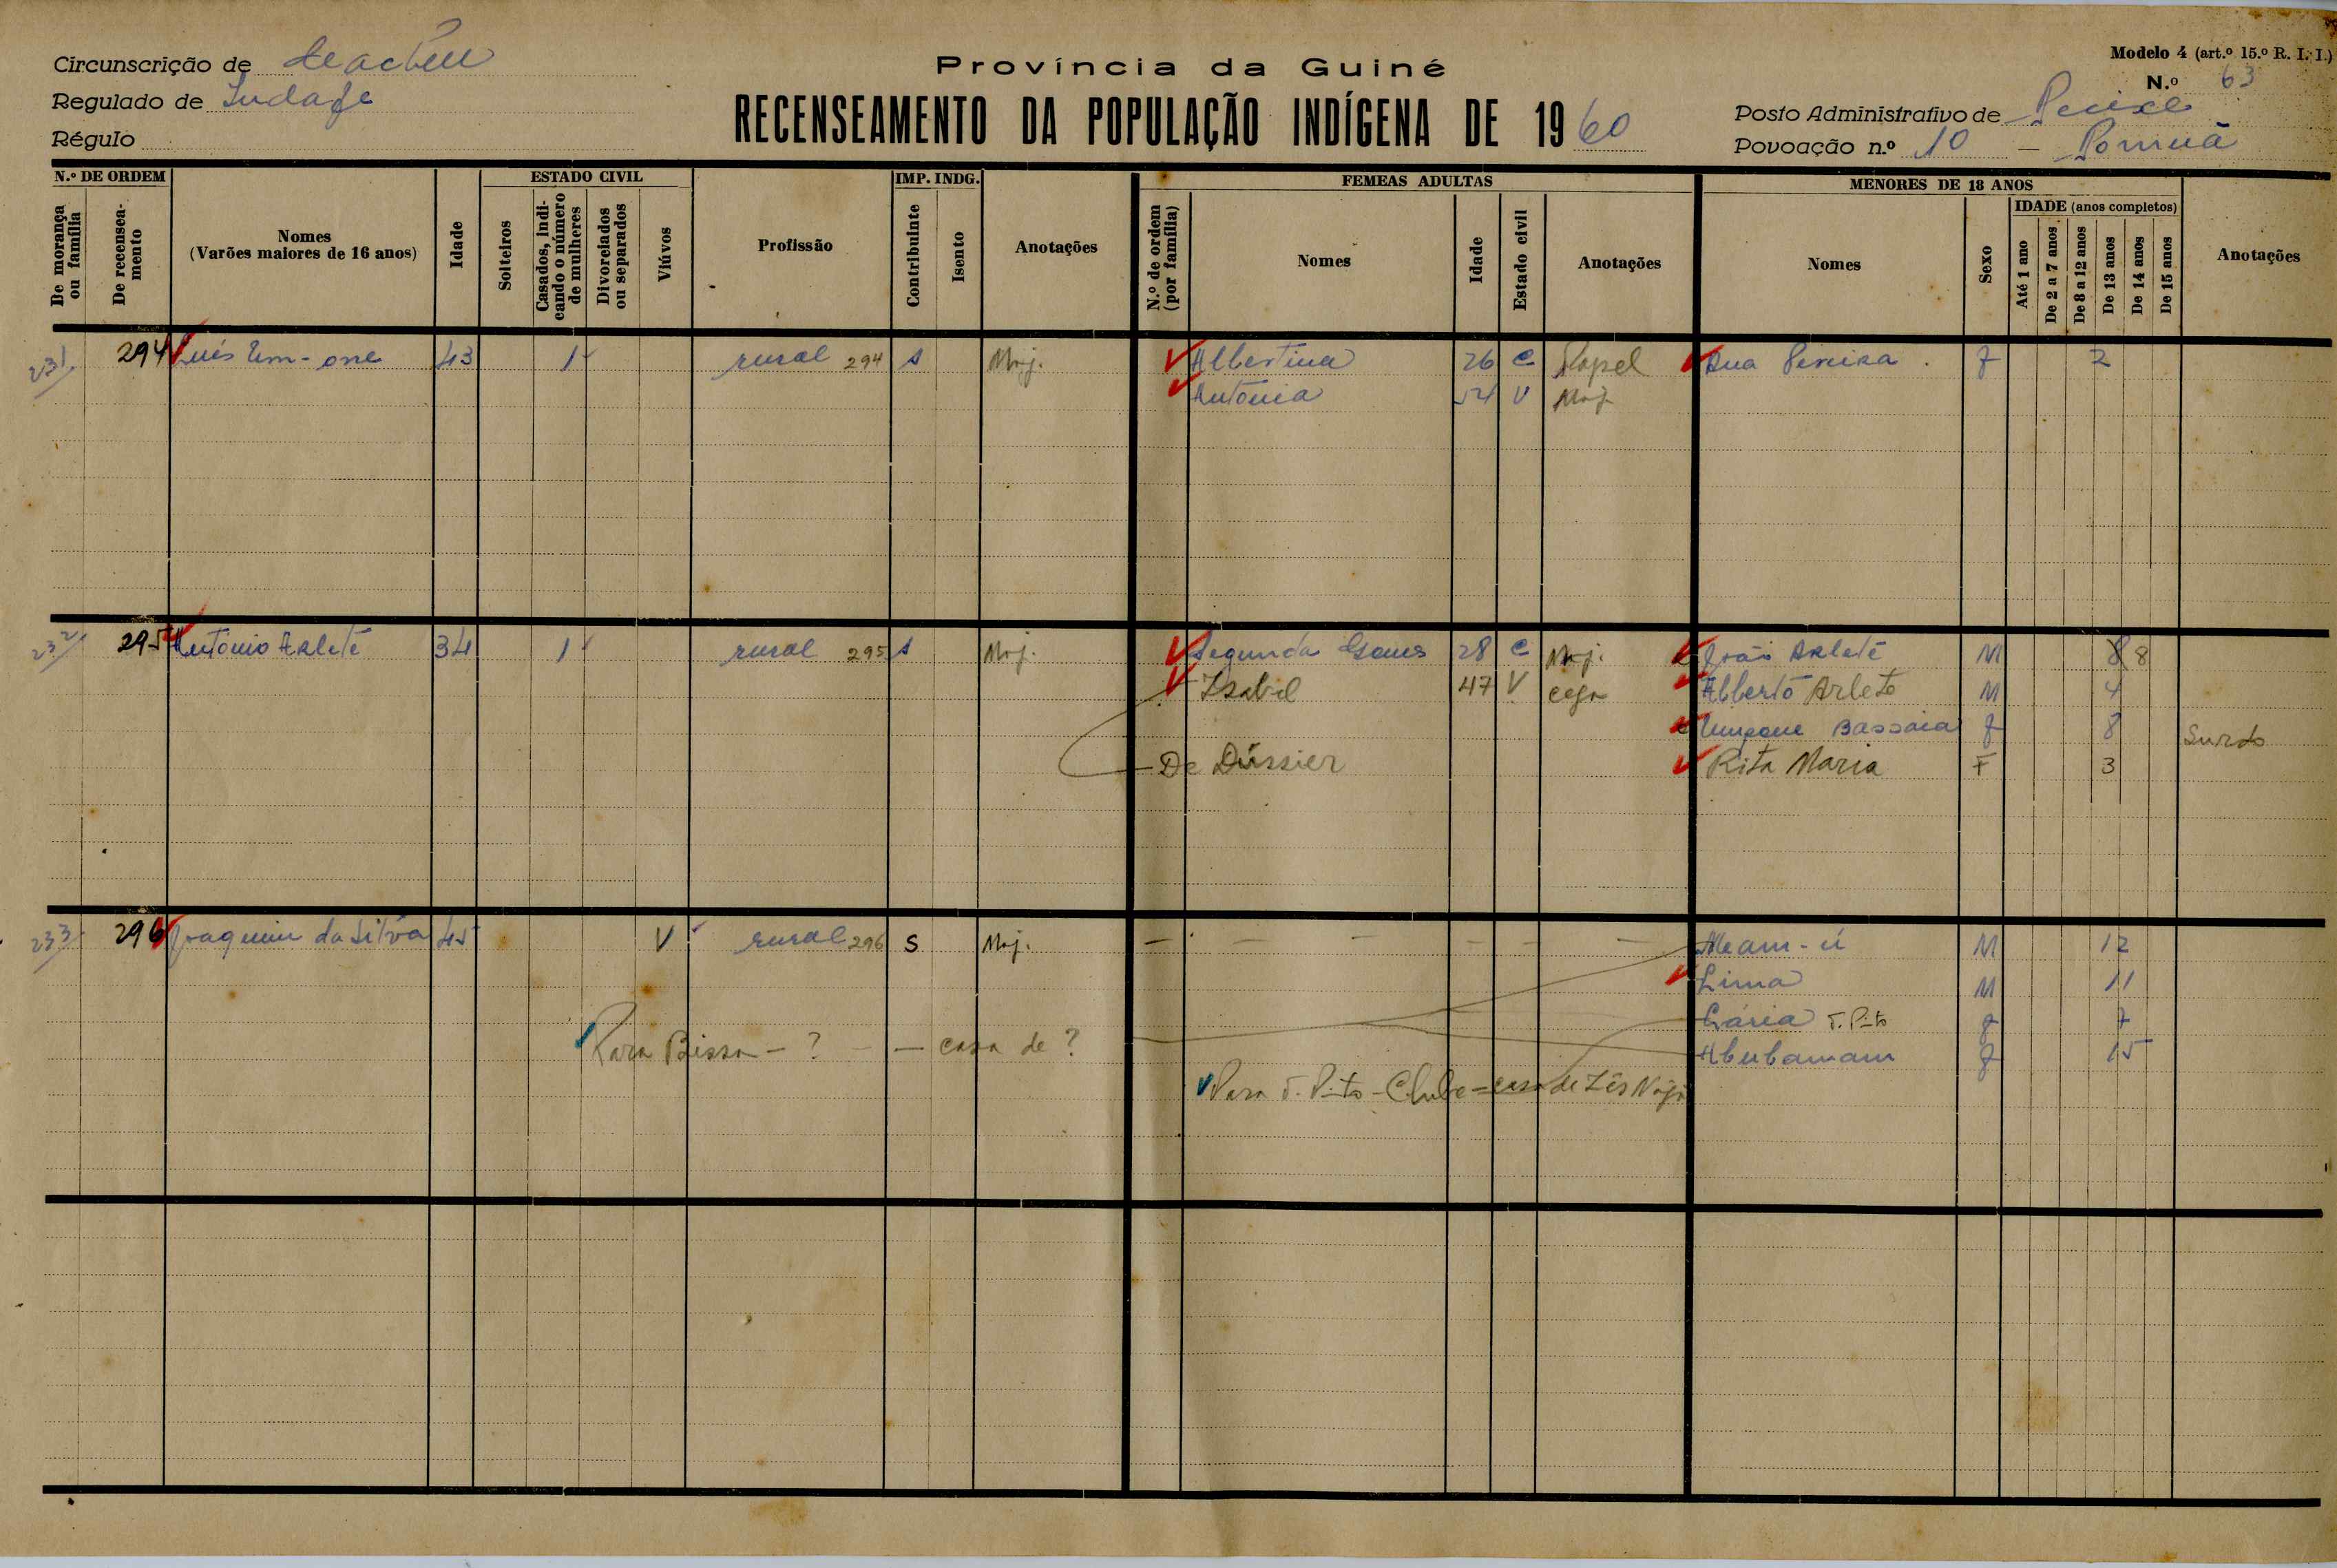 Circunscrição de
Regulado de
Régulo
Província da Guiné
RECENSEAMENTO DA POPULAÇÃO INDÍGENA DE 1960
Modelo 4 (art.º 15.º R. I. I.)
N.º 63
Posto Administrativo de
Povoação n.º 10 —
N.º DE ORDEM
De morança ou família
De recenseamento
Nomes
(Varões maiores de 16 anos)
Idade
ESTADO CIVIL
Solteiros
Casados, indicando o número de mulheres
Divorciados ou separados
Viúvos
Profissão
IMP. INDG.
Contribuinte
Isento
Anotações
FEMEAS ADULTAS
N.º de ordem (por família)
Nomes
Idade
Estado civil
Anotações
MENORES DE 18 ANOS
Nomes
Sexo
IDADE (anos completos)
Até 1 ano
De 2 a 7 anos
De 8 a 12 anos
De 13 anos
De 14 anos
De 15 anos
Anotações
231 294 Luís 43 1 rural 294 s Maj. Albertina 26 C Papel Ana Pereira F 2
Antónia 54 V Maj
232 295 António Arleté 34 1 rural 295 s Maj. Segunda Gomes 28 C Maj. João Arleté M 8 8
Isabel 47 V cega Alberto Arleté M 4
Bassaia F 8 Surdo
De Dússier Rita Maria F 3
233 296 Joaquim da Silva 45 V rural 296 S Maj. — — — — — — M 12
Lima M 11
T. Pinto F 7
Para Bissa — ? — — casa de ? F 15
Para T. Pinto - Clube = casa de